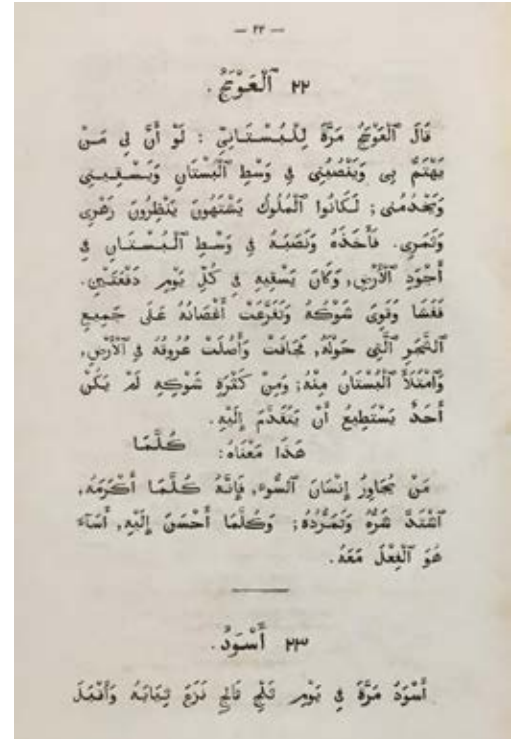 — ٢٢ —
٢٢ اَلْعَوْسَجُ.
قَالَ ٱلْعَوْسَجُ مَرَّةً لِلْبُسْتَانِيِّ : لَوْ أَنَّ لِي مَنْ
يَهْتَمُّ بِي وَيَنْصُبُنِي فِي وَسْطِ ٱلْبُسْتَانِ وَيَسْقِينِي
وَيَخْدُمُنِي; لَكَانُوا ٱلْمُلُوكُ يَشْتَهُونَ يَنْظُرُونَ زَهْرِي
وَثَمَرِي. فَأَخَذَهُ وَنَصَبَهُ فِي وَسْطِ ٱلْبُسْتَانِ فِي
أَجْوَدِ ٱلْأَرْضِ, وَكَانَ يَسْقِيهِ فِي كُلِّ يَوْمٍ دَفْعَتَيْنِ.
فَفَشَا وَقَوِيَ شَوْكُهُ وَتَفَرَّعَتْ أَغْصَانُهُ عَلَى جَمِيعِ
ٱلشَّجَرِ ٱلَّتِي حَوْلَهُ, فَجَافَتْ وَأَصَلَتْ عُرُوقُهُ فِي ٱلْأَرْضِ,
وَٱمْتَلَأَ ٱلْبُسْتَانُ مِنْهُ; وَمِنْ كَثْرَةِ شَوْكِهِ لَمْ يَكُنْ
أَحَدٌ يَسْتَطِيعُ أَنْ يَتَقَدَّمَ إِلَيْهِ.
هَذَا مَعْنَاهُ: كُلَّمَا
مَنْ يُجَاوِرُ إِنْسَانَ ٱلسُّوءِ, فَإِنَّهُ كُلَّمَا أَكْرَمَهُ,
ٱشْتَدَّ شَرُّهُ وَتَمَرُّدُهُ; وَكُلَّمَا أَحْسَنَ إِلَيْهِ, أَسَآءَ
هُوَ ٱلْفِعْلَ مَعَهُ.
٢٣ أَسْوَدُ.
أَسْوَدُ مَرَّةً فِي يَوْمِ ثَلْجٍ نَزَعَ ثِيَابَهُ وَأَقْبَلَ